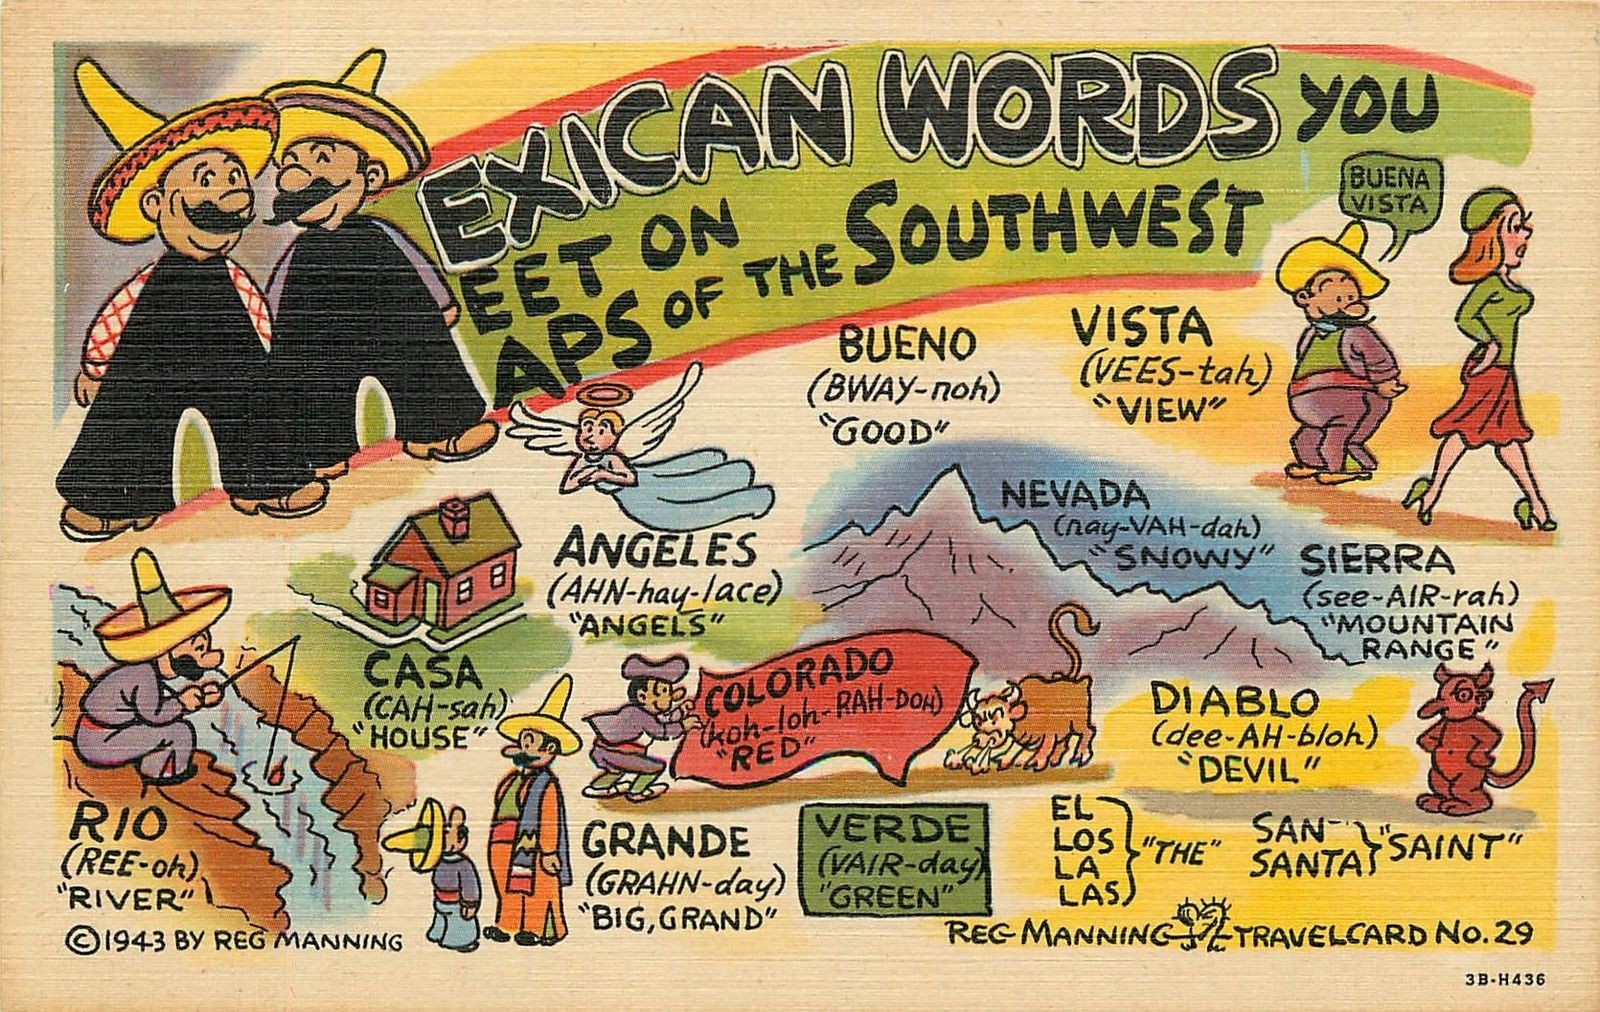 MEXICAN WORDS YOU
MEET ON
MAPS OF THE SOUTHWEST
BUENA
VISTA
BUENO
(BWAY-noh)
"GOOD"
VISTA
(VEES-tah)
"VIEW"
ANGELES
(AHN-hay-lace)
"ANGELS"
NEVADA
(nay-VAH-dah)
"SNOWY"
SIERRA
(see-AIR-rah)
"MOUNTAIN
RANGE"
CASA
(CAH-sah)
"HOUSE"
COLORADO
(koh-loh-RAH-DOH)
"RED"
DIABLO
(dee-AH-bloh)
"DEVIL"
RIO
(REE-oh)
"RIVER"
GRANDE
(GRAHN-day)
"BIG, GRAND"
VERDE
(VAIR-day)
"GREEN"
EL
LOS
LA
LAS
"THE"
SAN
SANTA
"SAINT"
©1943 BY REG MANNING
REG MANNING TRAVELCARD No. 29
3B-H436